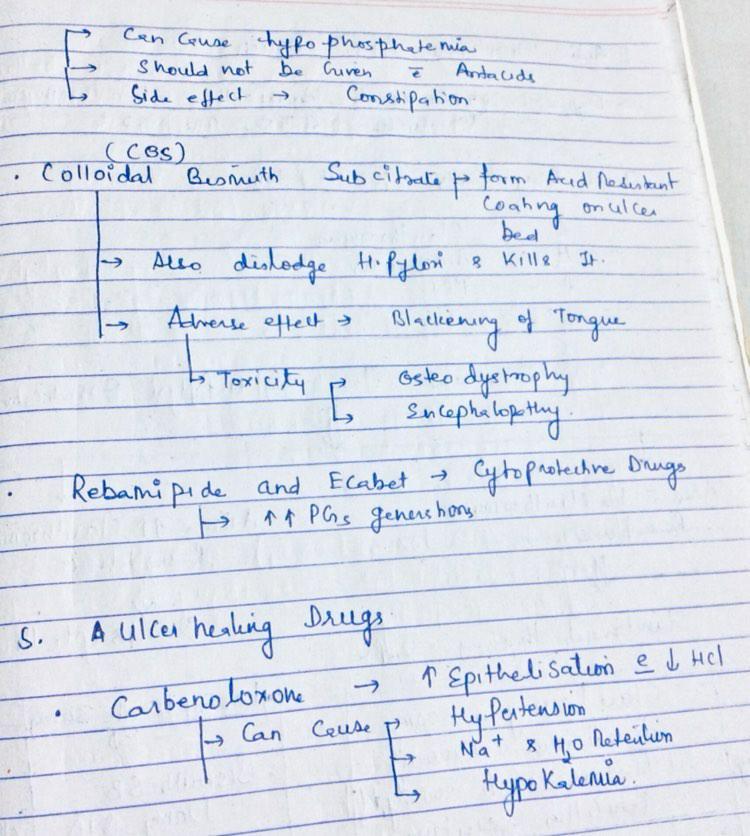 → Can Cause hypophosphatemia
→ Should not be Given c̄ Antacids
→ Side effect → Constipation
(CBS)
• Colloidal Bismuth Subcitrate → form Acid Resistant
Coating on ulcer
bed
→ Also dislodge H. Pylori & Kills It.
→ Adverse effect → Blackening of Tongue
→ Toxicity → Osteodystrophy
→ Encephalopathy.
• Rebamipide and Ecabet → Cytoprotective Drugs
→ ↑↑ PGs generations
5. A ulcer healing Drugs
• Carbenoloxone → ↑ Epithelisation c̄ ↓ Hcl
→ Can Cause → Hypertension
→ Na⁺ & H₂O Retention
→ HypoKalemia.